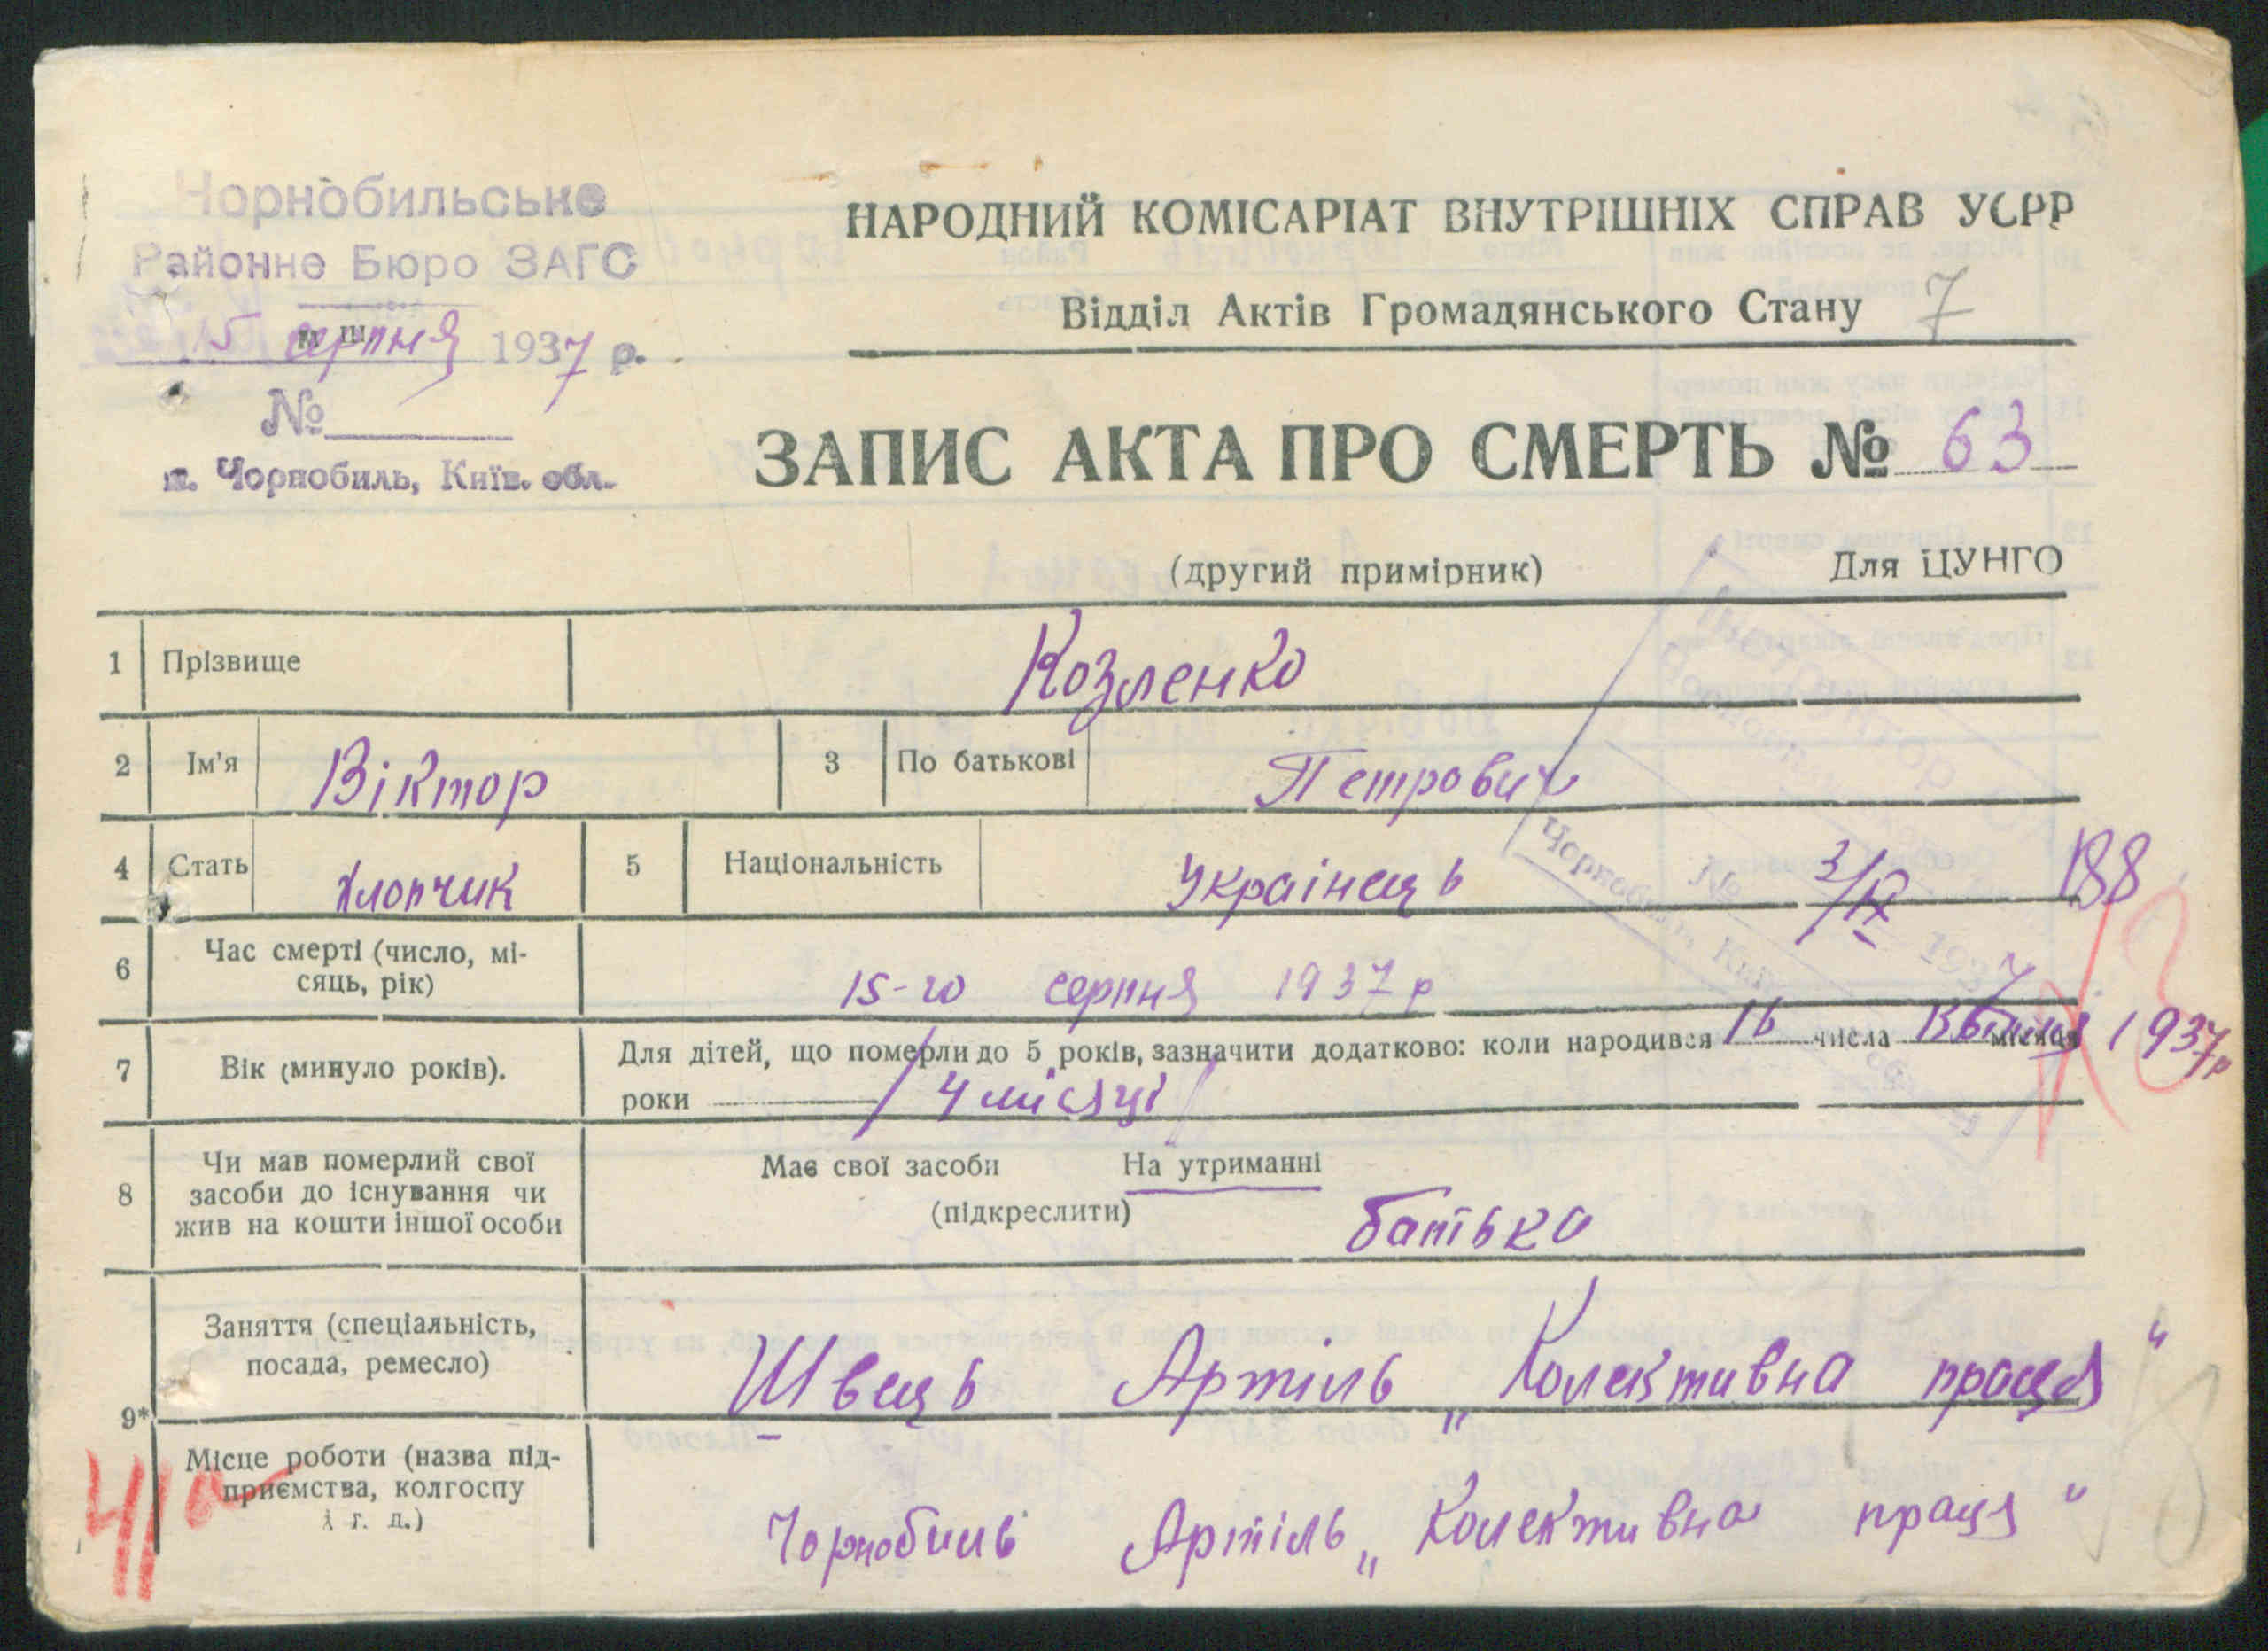 Чорнобильське
Районне Бюро ЗАГС
15 серпня 1937 р.
№
м. Чорнобиль, Київ. обл.
НАРОДНИЙ КОМІСАРІАТ ВНУТРІШНІХ СПРАВ УСРР
Відділ Актів Громадянського Стану 7
ЗАПИС АКТА ПРО СМЕРТЬ № 63
(другий примірник) Для ЦУНГО
1 Прізвище Козленко
2 Ім'я Віктор 3 По батькові Петрович
4 Стать хлопчик 5 Національність Українець 3/IX 188
6 Час смерті (число, мі-
сяць, рік) 15-го серпня 1937 р
7 Вік (минуло років). Для дітей, що померли до 5 років, зазначити додатково: коли народився 16 числа місяця 1937 р
роки 4 місяці
8 Чи мав померлий свої
засоби до існування чи
жив на кошти іншої особи
Має свої засоби На утриманні
(підкреслити) батька
9* Заняття (спеціальність,
посада, ремесло) Швець Артіль „Колективна праця"
Місце роботи (назва під-
приємства, колгоспу
і т. д.) Чорнобиль Артіль „Колективна праця"
Чорнобиль
№
1937